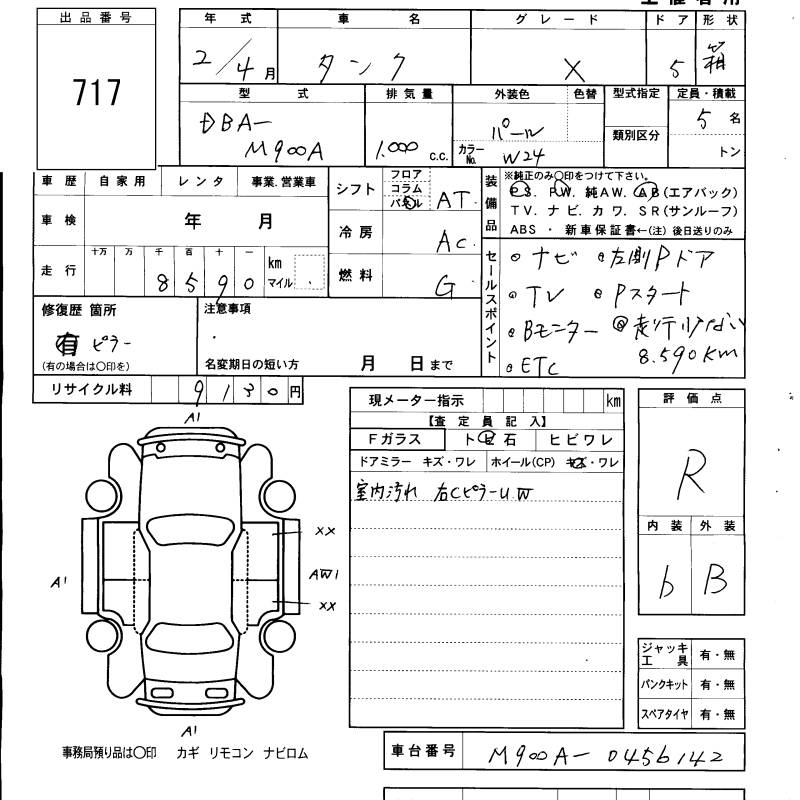 出品番号
717
年 式 車 名 グ レ ー ド ド ア 形 状
2/4月 タンク X 5 箱
型 式 排 気 量 外装色 色替 型式指定 定員・積載
DBA- M900A 1,000 c.c. パール カラーNo. W24 類別区分 5 名 トン
車 歴 自 家 用 レ ン タ 事業.営業車
車 検 年 月
走 行 十万 万 千 百 十 一 km マイル
8 5 9 0
シフト フロア コラム パネル AT
冷 房 AC
燃 料 G
装備品 ※純正のみ〇印をつけて下さい。
PS. PW. 純AW. AB(エアバック)
TV. ナ ビ. カ ワ. SR(サンルーフ)
ABS ・ 新車保証書←(注) 後日送りのみ
セールスポイント
ナビ 左側Pドア
TV Pスタート
Bモニター 走行少ない
ETC 8.590KM
修復歴 箇所
有 ピラー
(有の場合は〇印を)
注意事項
名変期日の短い方 月 日まで
リサイクル料 9 1 3 0 円
現メーター指示 km
【査 定 員 記 入】
Fガラス ト ビ 石 ヒ ビ ワ レ
ドアミラー キズ・ワレ ホイール(CP) キズ・ワレ
室内汚れ 右CピラーU W
評 価 点
R
内 装 外 装
b B
A1
XX
A1 AW1
XX
A1
ジャッキ工具 有・無
パンクキット 有・無
スペアタイヤ 有・無
事務局預り品は〇印 カギ リモコン ナビロム
車台番号 M900A-0456142